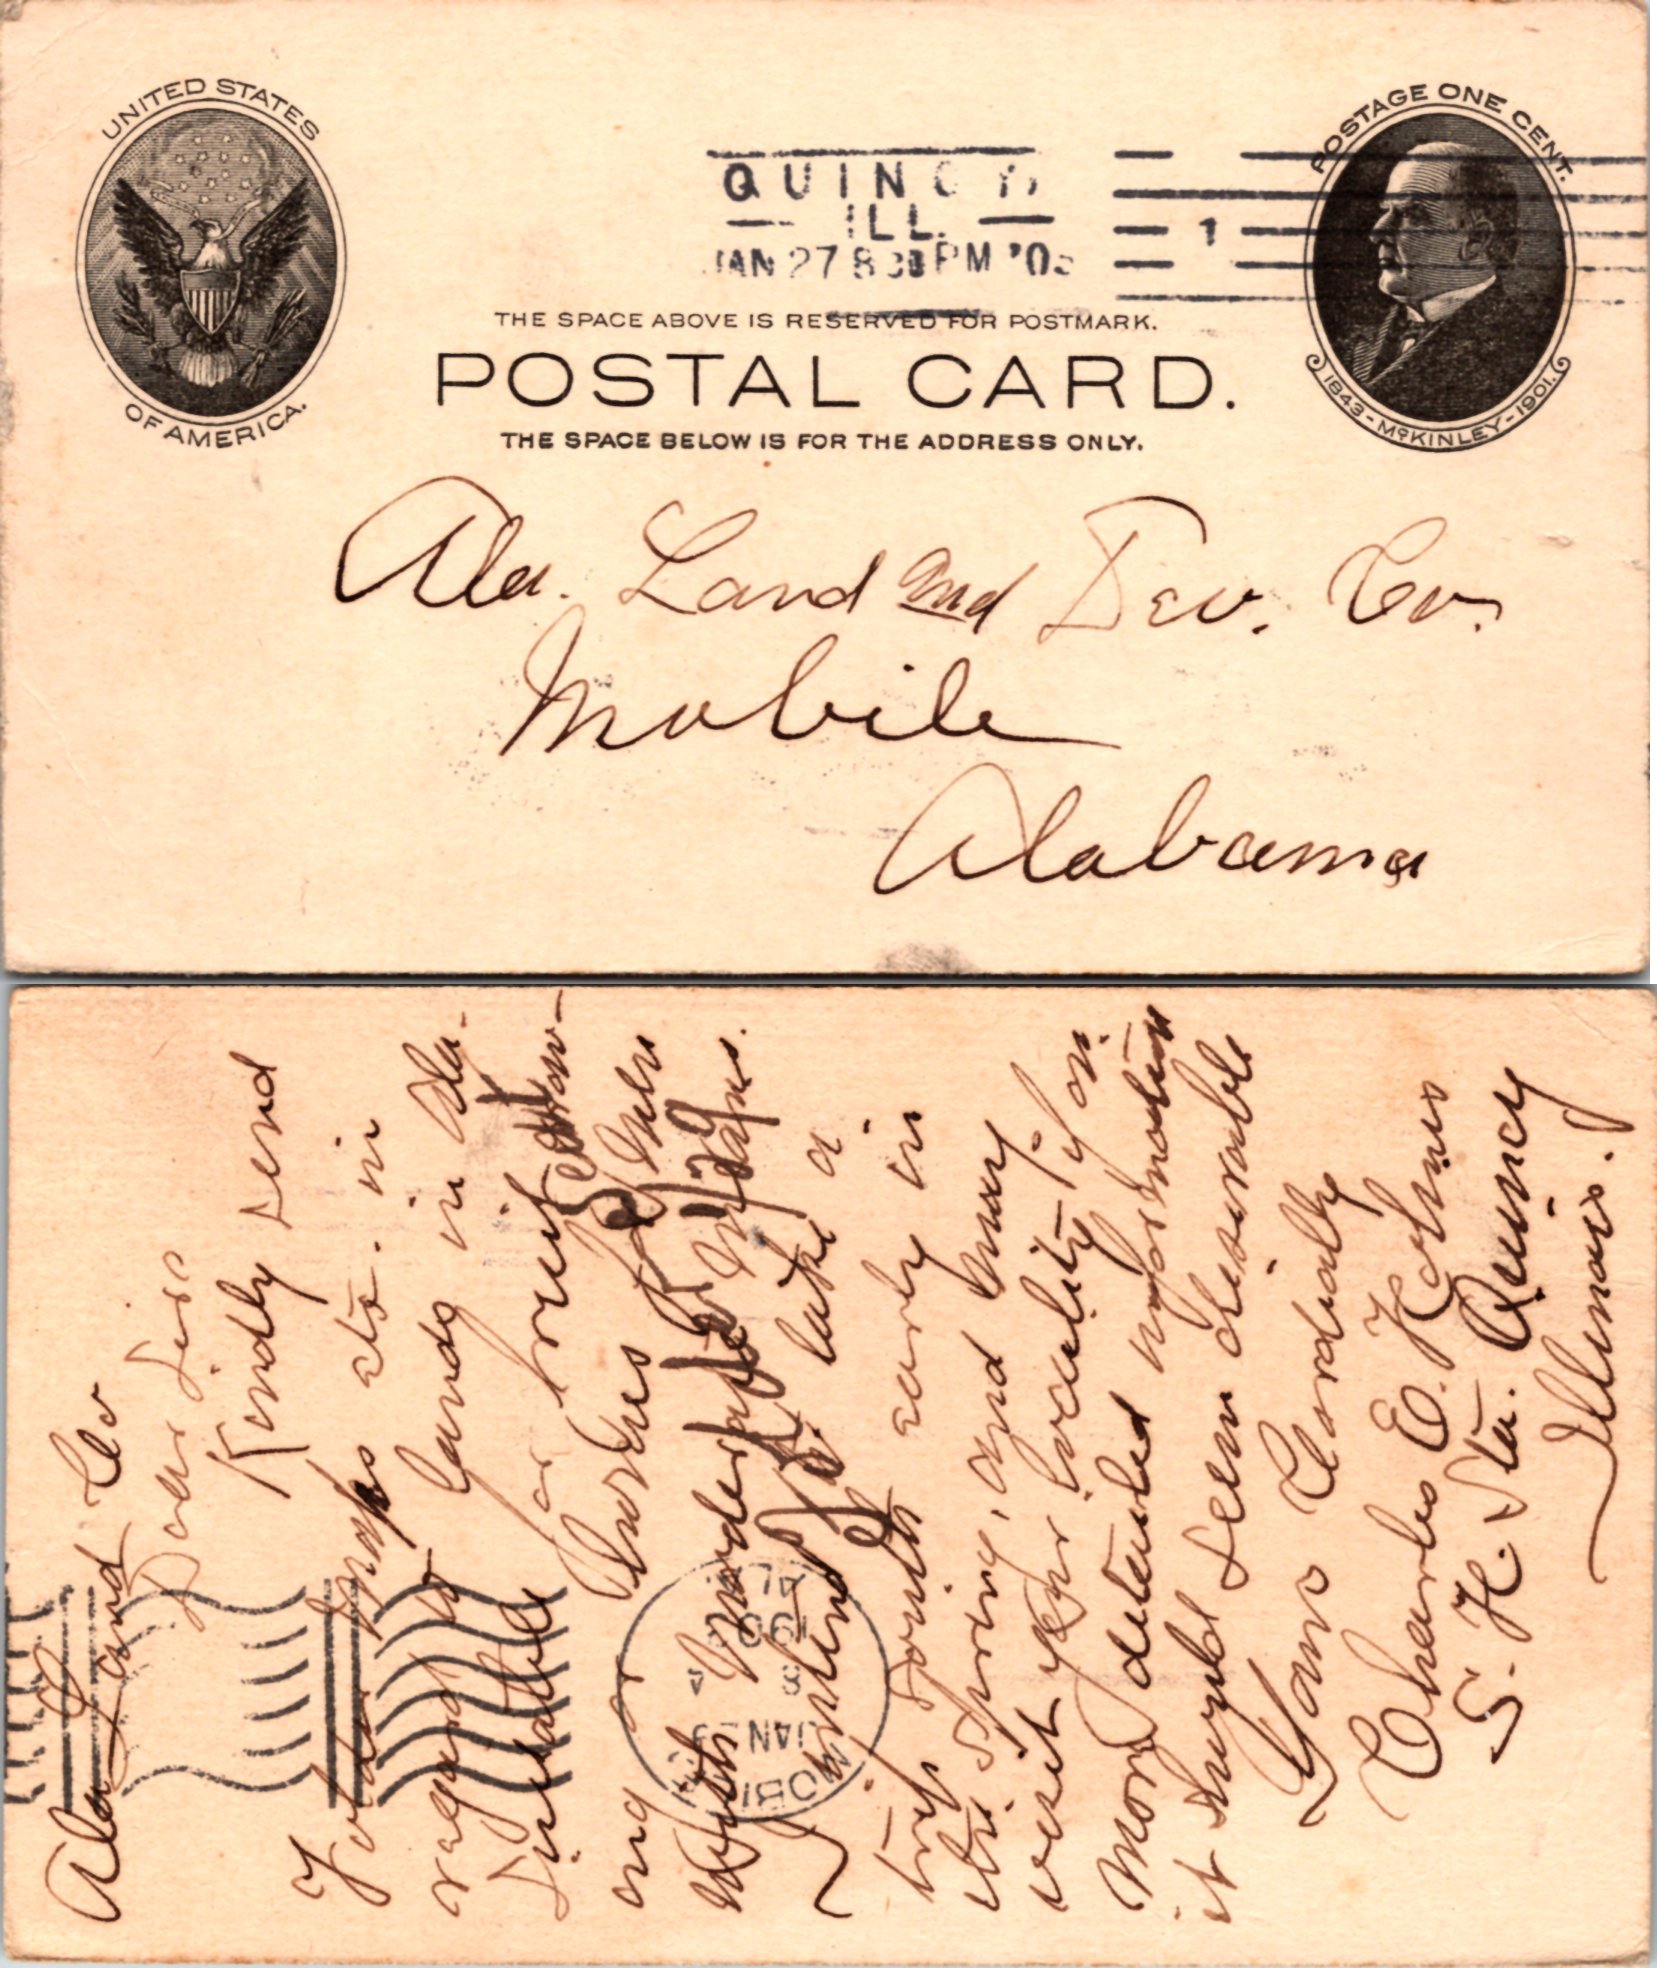 UNITED STATES
OF AMERICA.
QUINCY
ILL.
JAN 27 8 30 PM '0
1
POSTAGE ONE CENT.
1843-McKINLEY-1901.
THE SPACE ABOVE IS RESERVED FOR POSTMARK.
POSTAL CARD.
THE SPACE BELOW IS FOR THE ADDRESS ONLY.
Ala. Land and Dev. Co.
Mobile
Alabama
Ala Land Co
Dear Sirs
Kindly send
Folder Maps etc. in
regard to lands in Ala.
suitable for fruit
ing or purposes for Men
with moderate Means.
I intend to take a
trip South early in
the Spring, and may
visit your locality if on
more detailed information
it should seem desirable
Yours Cordially
Charles E. Holmes
S. H. Sta. Quincy
Illinois.
MOBI
JAN